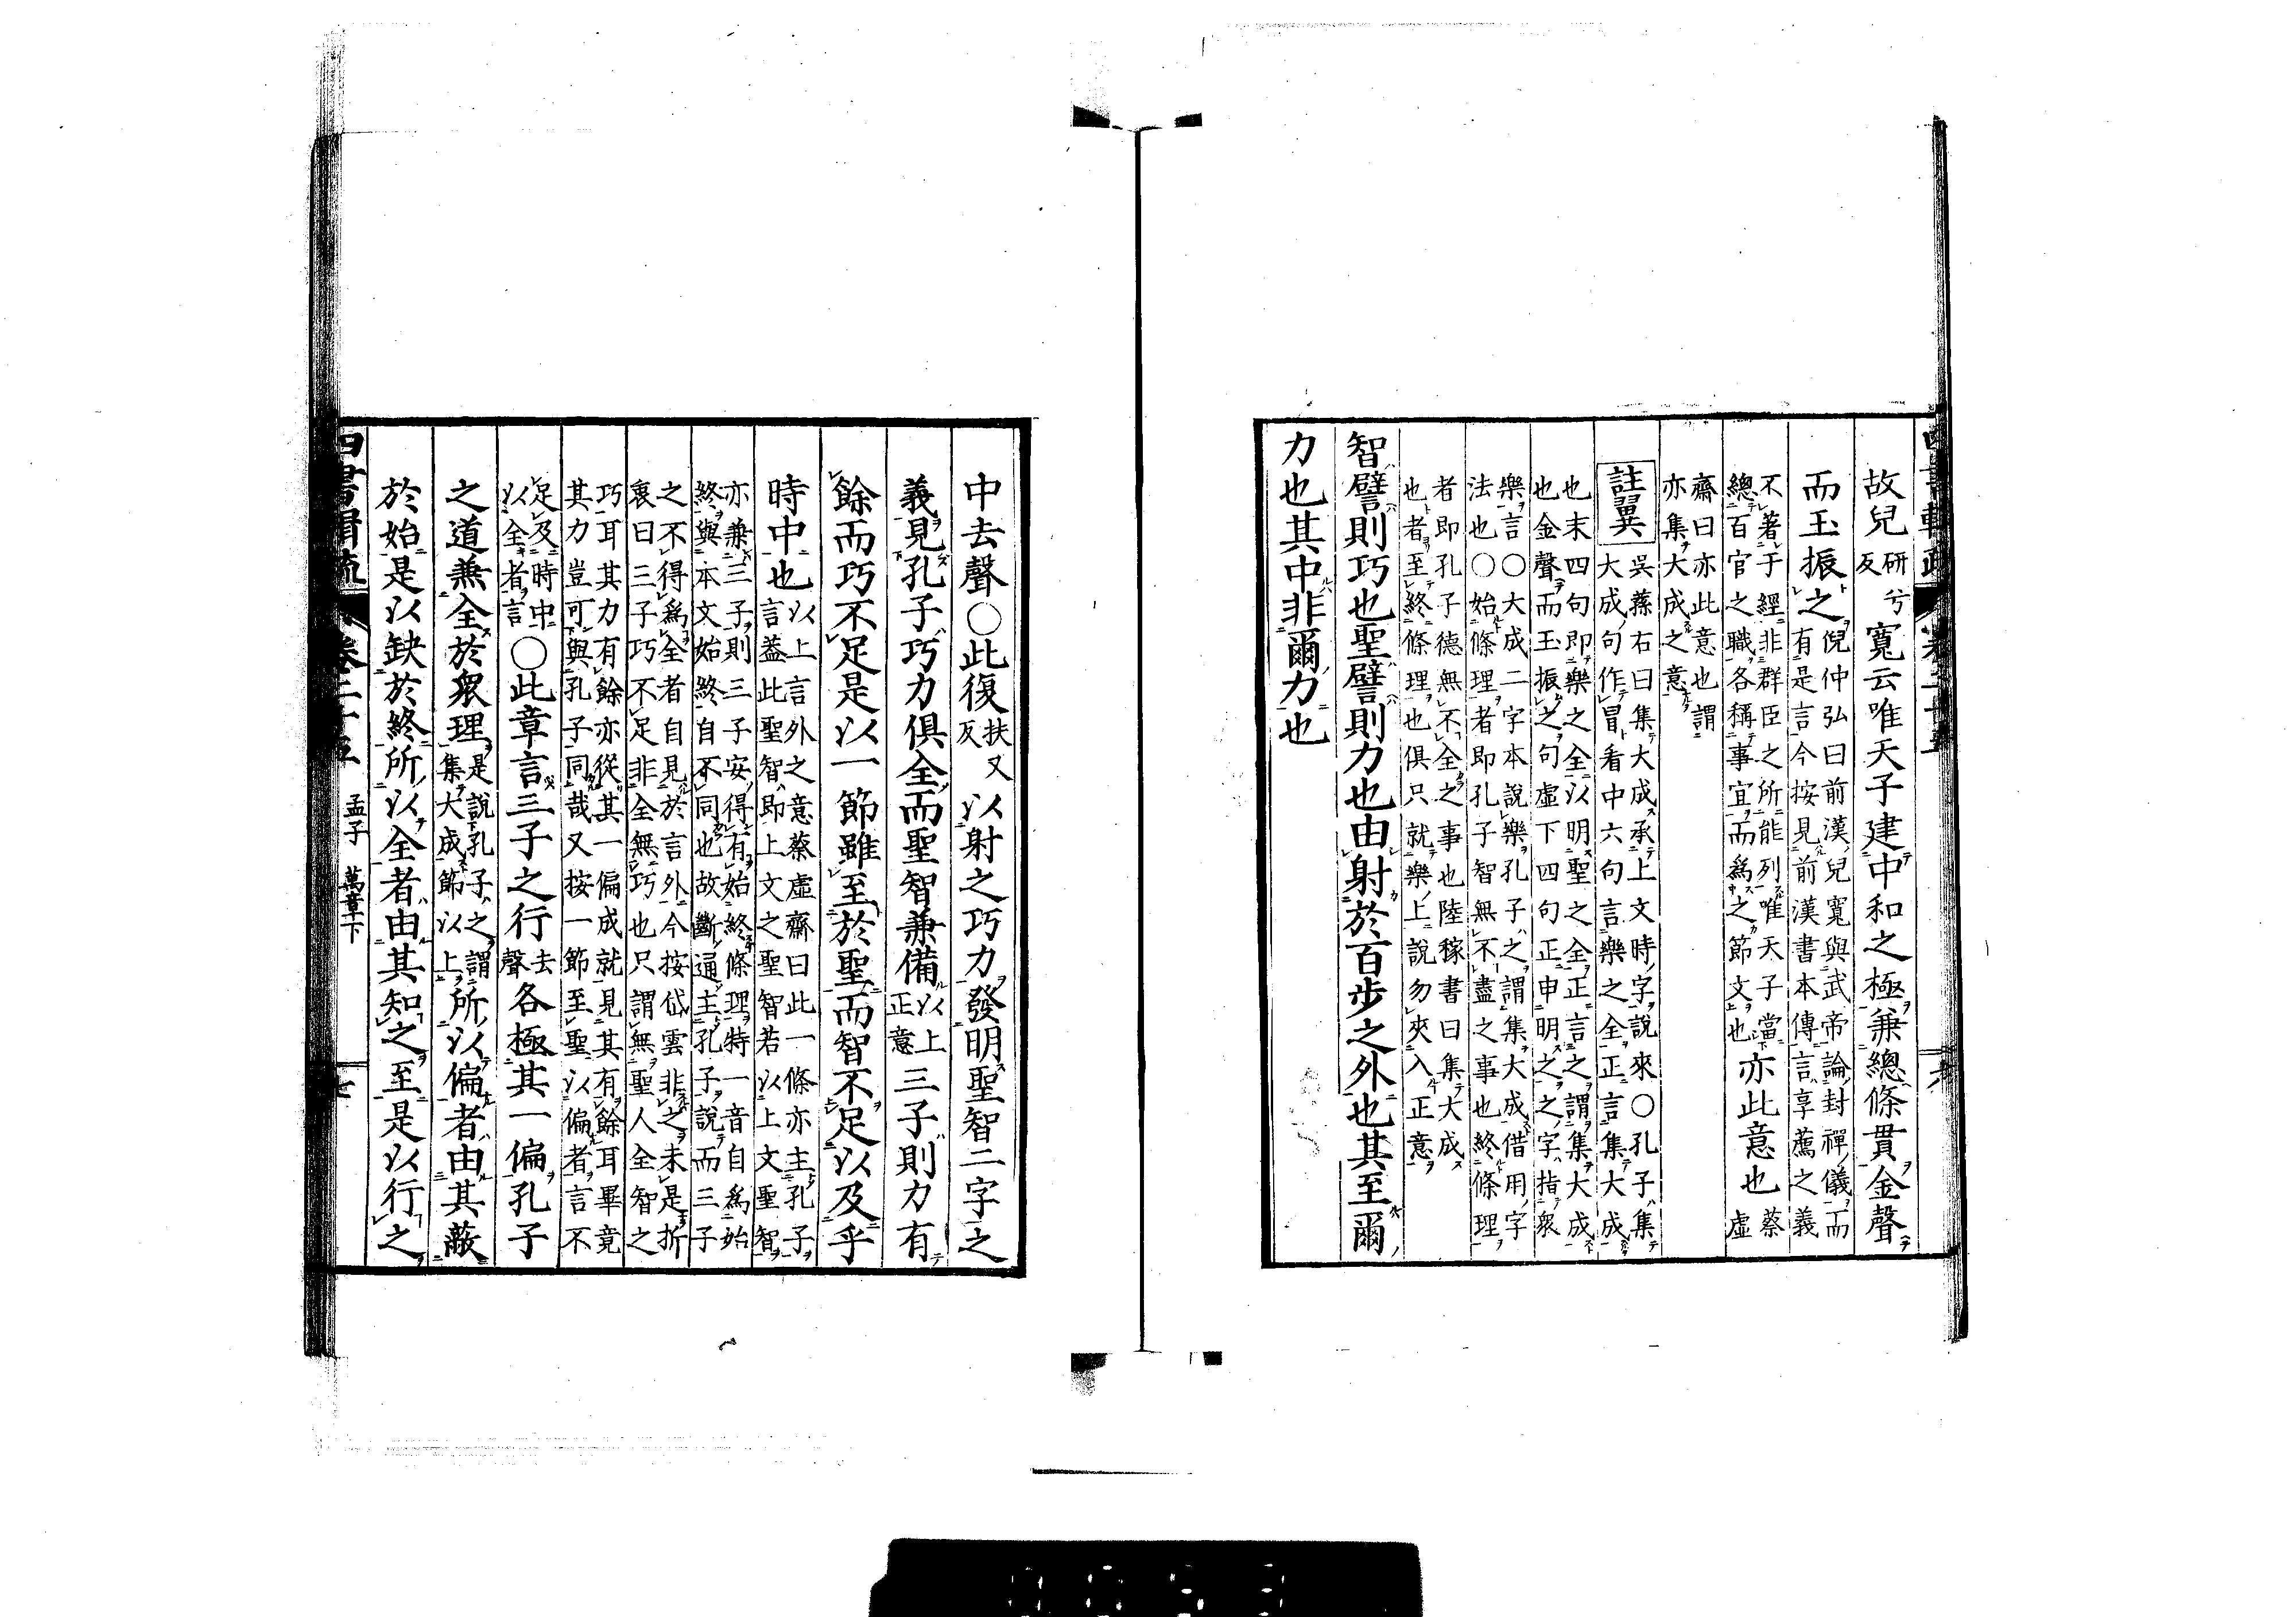 故兒研兮反寬云唯天子建中和之極兼總條貫金聲
而玉振之倪仲弘曰前漢兒寬與武帝論封禪儀而
有是言今按見前漢書本傳言享薦之義
不著于經非群臣之所能列唯天子當
總百官之職各稱事宜而爲之節文也亦此意也蔡虛
齋曰亦此意也謂
亦集大成之意
註翼吳蓀右曰集大成承上文時字說來○孔子集
大成句作冒看中六句言樂之全正言集大成
也末四句即樂之全以明聖之全正言之謂集大成
也金聲而玉振之句虛下四句正申明之之字指衆
樂言○大成二字本說樂孔子之謂集大成借用字
法也○始條理者即孔子智無不盡之事也終條理
者即孔子德無不全之事也陸稼書曰集大成
也者至終條理也俱只就樂上說勿夾入正意
智譬則巧也聖譬則力也由射於百步之外也其至爾
力也其中非爾力也
中去聲○此復扶又反以射之巧力發明聖智二字之
義見孔子巧力俱全而聖智兼備以上正意三子則力有
餘而巧不足是以一節雖至於聖而智不足以及乎
時中也以上言外之意蔡虛齋曰此一條亦主孔子
言蓋此聖智即上文之聖智若以上文聖智
亦兼三子則三子安得有始終條理特一音自爲始
終與本文始終自不同也故斷通主孔子說而三子
之不得爲全者自見於言外今按岱雲非之未是折
衷曰三子巧不足非全無巧也只謂無聖人全智之
巧耳其力有餘亦從其一偏成就見其有餘耳畢竟
其力豈可與孔子同哉又按一節至聖以偏者言不
足及時中
以全者言○此章言三子之行去聲各極其一偏孔子
之道兼全於衆理是說孔子之謂集大成節以上所以偏者由其蔽
於始是以缺於終所以全者由其知之至是以行之
卷二十五 孟子 萬章下 七